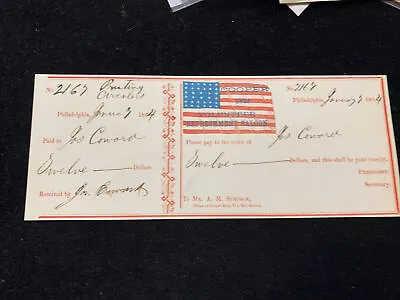 No. 2167 Printing
Circulars
Philadelphia, Jan'y 7 1864
Paid to Jos Coward
Twelve Dollars
Received by Jos. Coward
No. 2167
COOPER
SHOP
VOLUNTEER
REFRESHMENT SALOON.
Philadelphia, Jan'y 7 1864
Please pay to the order of Jos Coward
Twelve Dollars, and this shall be your receipt.
PRESIDENT
SECRETARY.
To MR. A. M. SIMPSON,